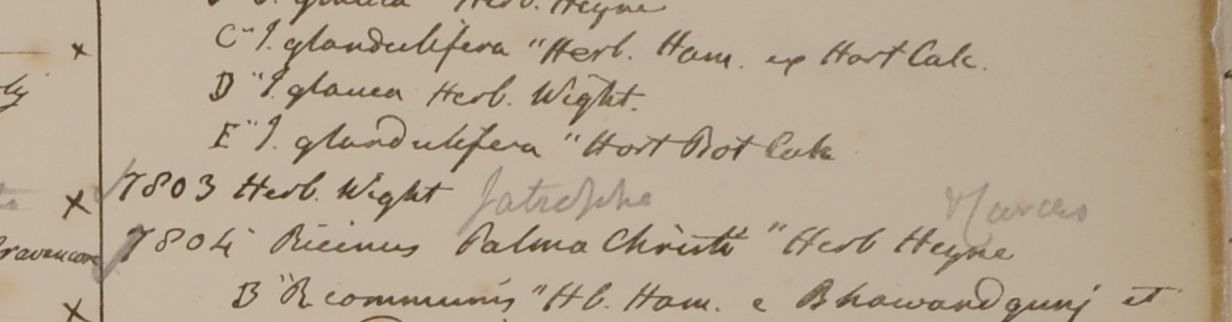 J. glauca " Herb. Heyne
C " J. glandulifera " Herb. Ham. ex Hort Calc.
D " J. glauca Herb. Wight.
E " J. glandulifera " Hort Bot Calc
7803 Herb. Wight Jatropha Curcas
7804 Ricinus Palma Christi " Herb Heyne
B " R communis " Hb. Ham. e Bhawandgunj et